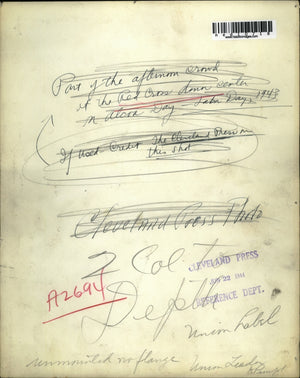 Part of the afternoon crowd
at the Red Cross donor center
on Labor Day 1943
If used Credit The Cleveland Press on
this shot
Cleveland Press Photo
2 Col
Depth
A2694
CLEVELAND PRESS
JUN 22 1944
REFERENCE DEPT.
Union Label
Unmounted no flange
Union Leader